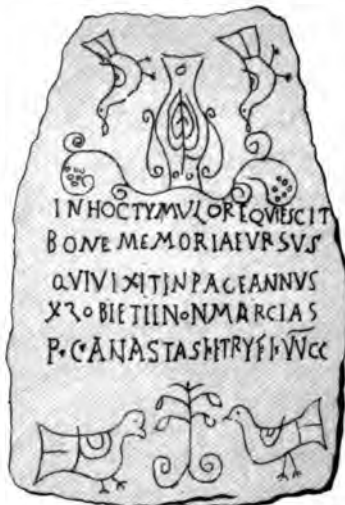 INHOCTYMVLOREQVIESCIT
BONEMEMORIAEVRSVS
QVIVIXITINPACEANNVS
XZOBIETIINONMARCIAS
P·C·ANASTASI·ETRVFI·VVCC